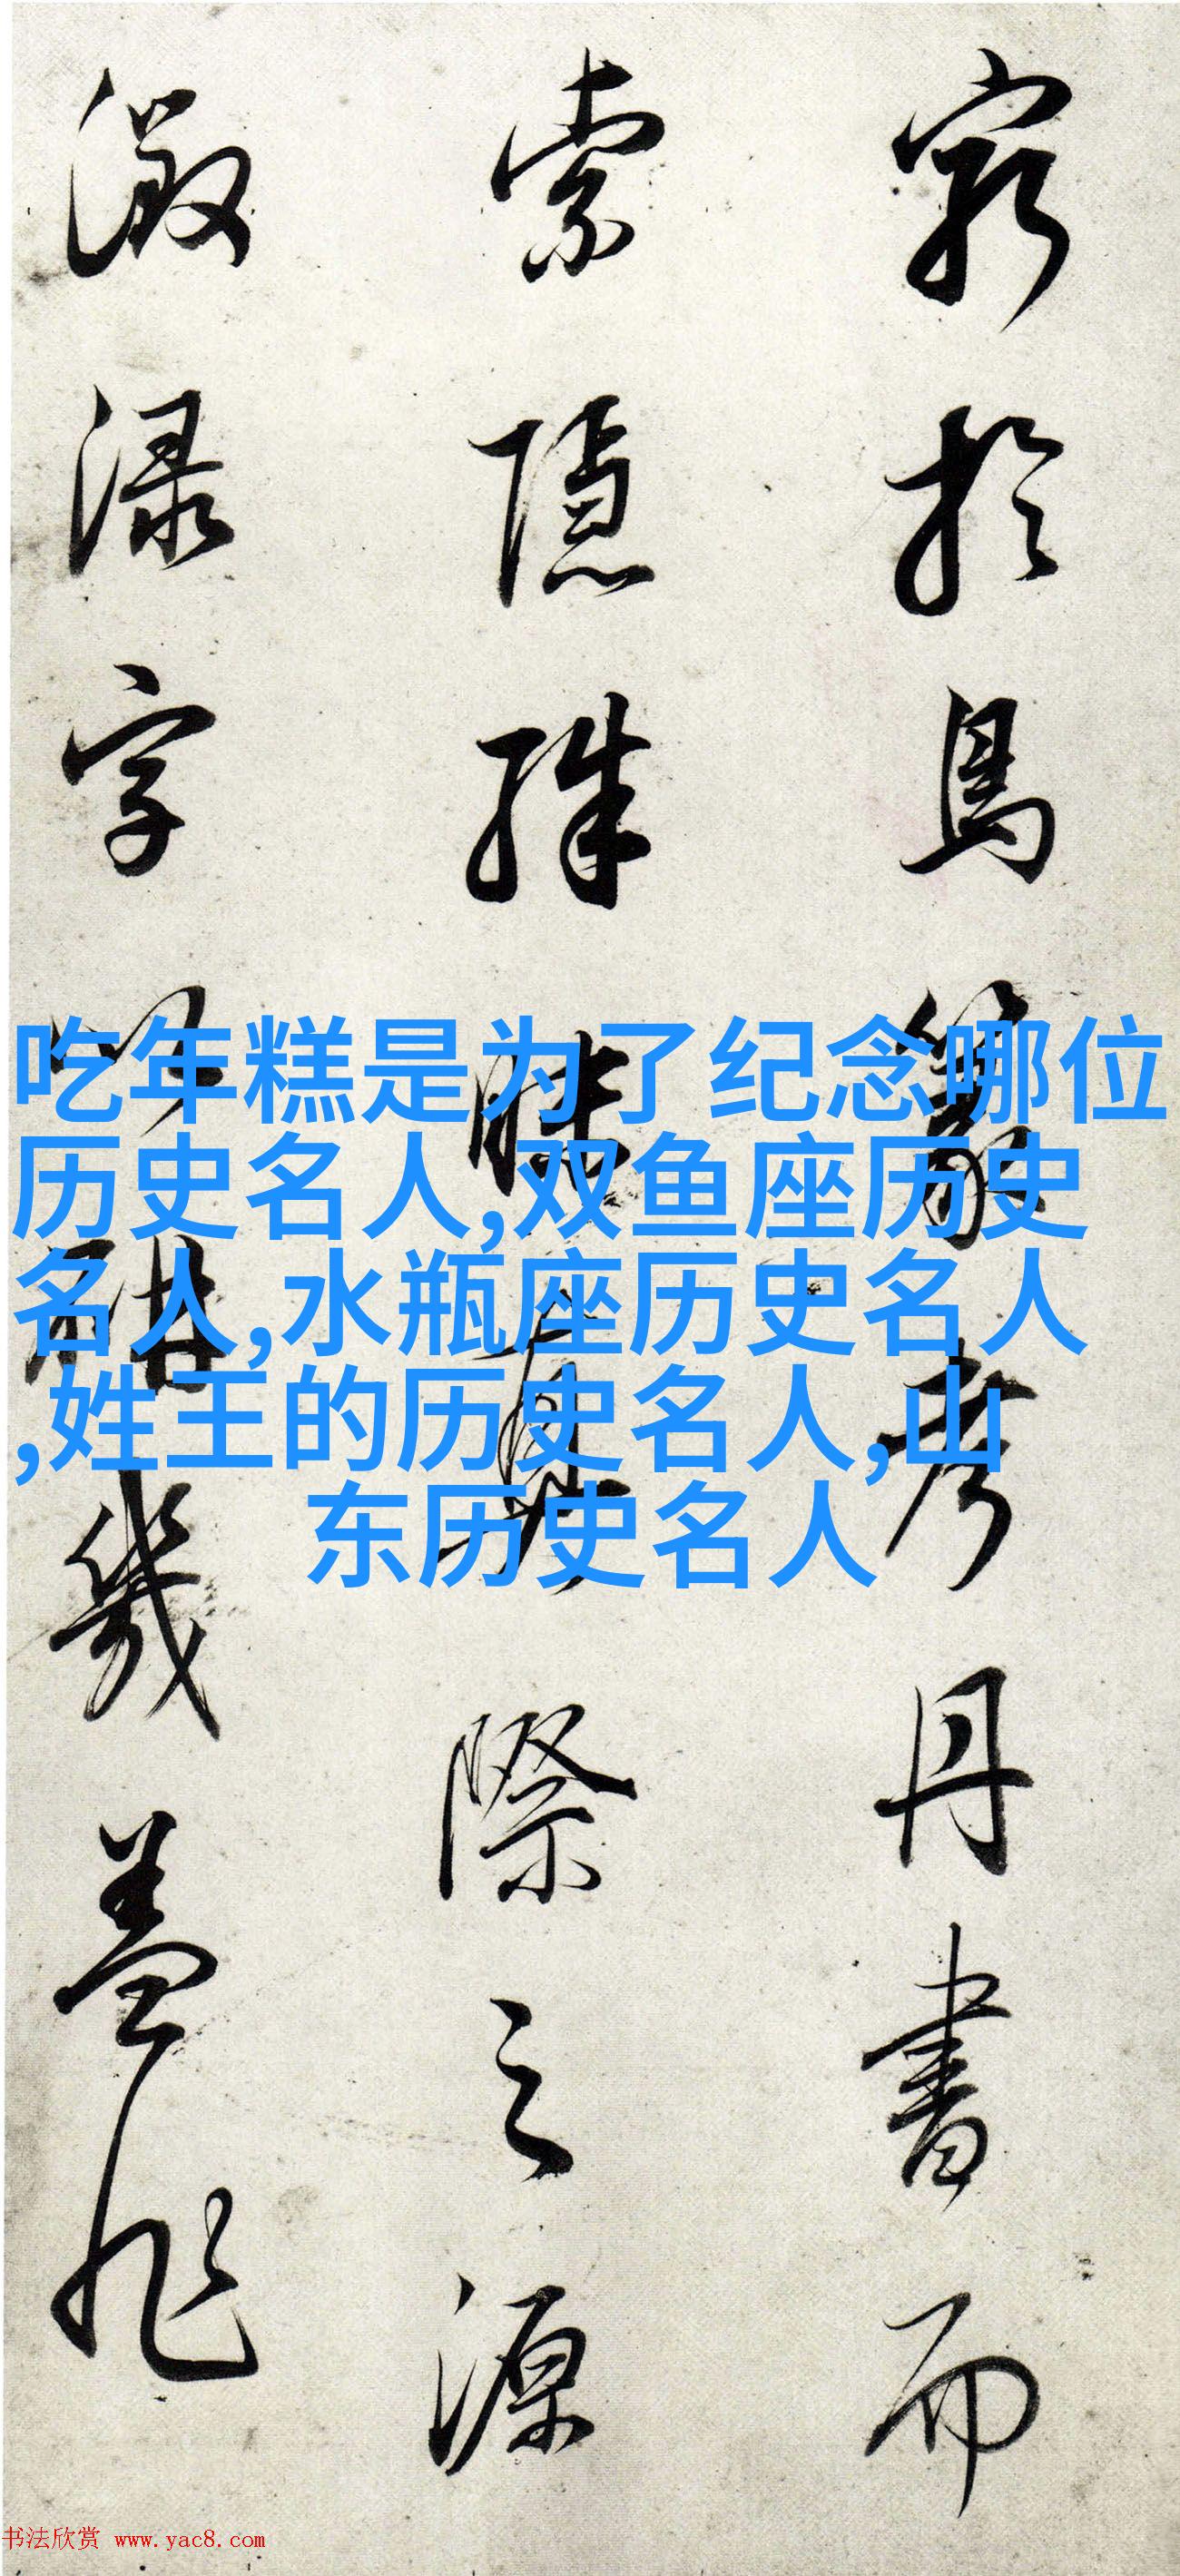 窮於鳥篆考丹書而
索隱殊昧真際之源
渌字幾蓋非
吃年糕是为了纪念哪位
历史名人,双鱼座历史
名人,水瓶座历史名人
,姓王的历史名人,山
东历史名人
书法欣赏 www.yac8.com